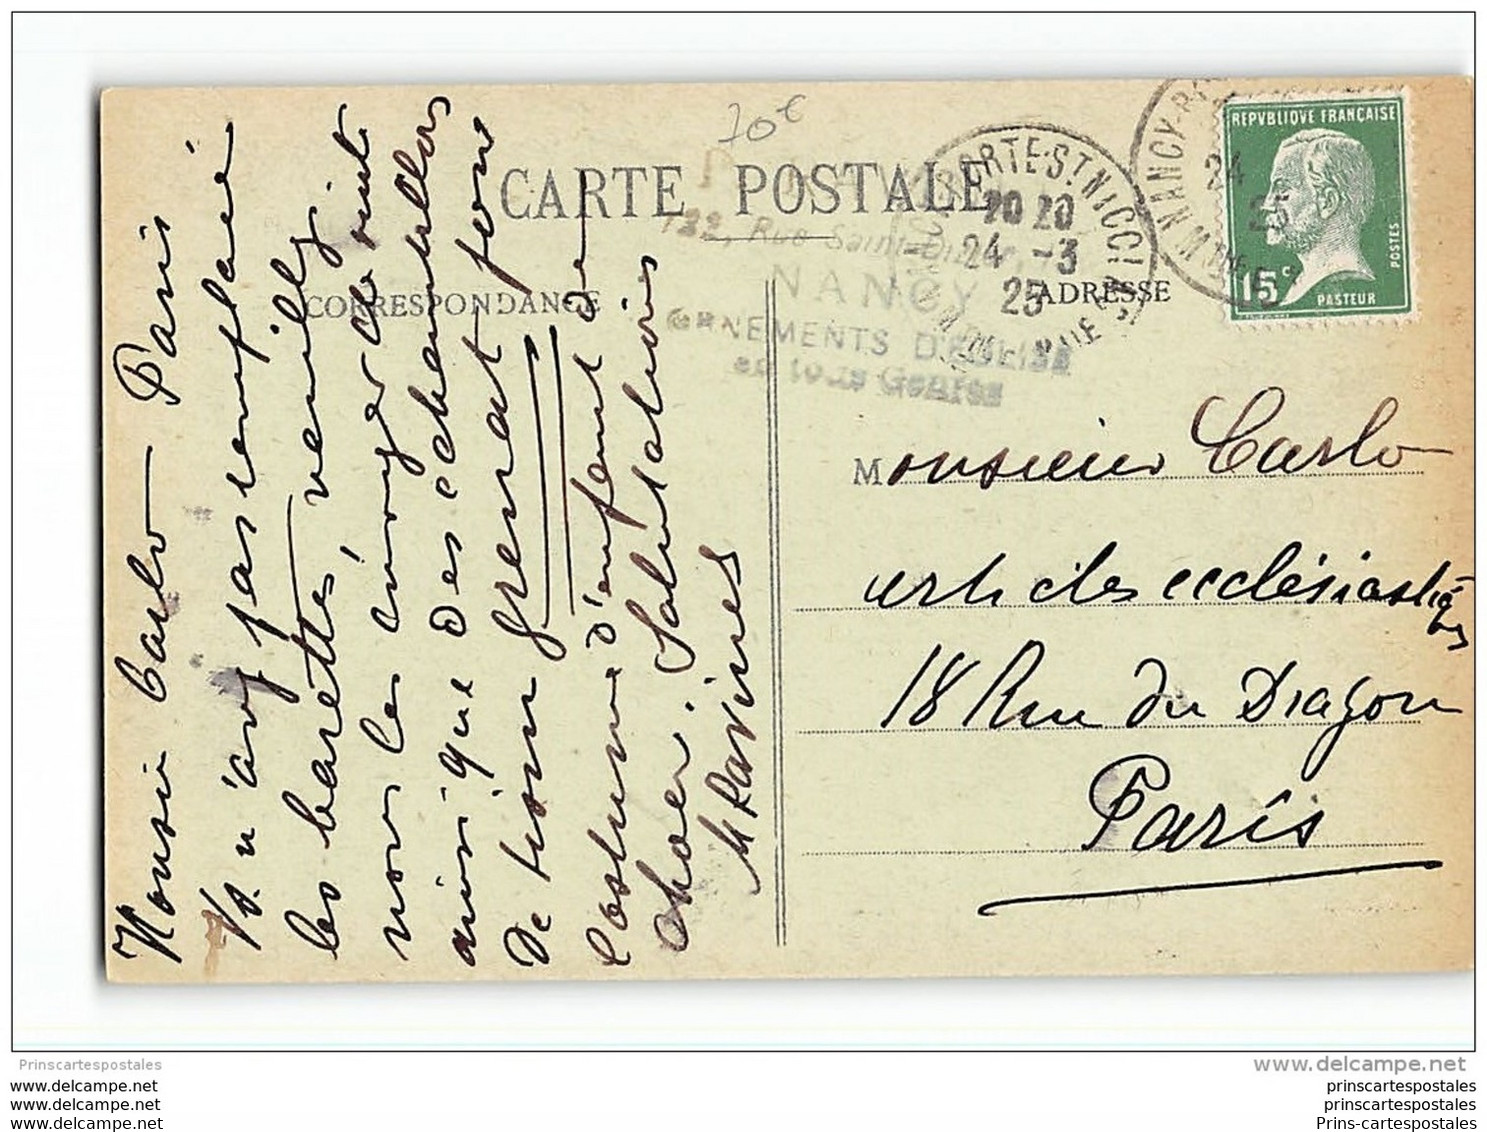 70€
CARTE POSTALE
122, Rue Saint-Dizier
NANCY
ORNEMENTS D'EGLISE
en tous Genres
PORTE-ST NICOLAS
20 20
24 -3
25
MTHE-ET-MLLE
NANCY-PORTE
24
25
REPVBLIQVE FRANÇAISE
POSTES
15c
PASTEUR
CORRESPONDANCE
ADRESSE
Monsieur Carlo Paris
Vs n'avez pas remplacé
les barettes, veuillez
nous les envoyer de suite
ainsi que des échantillons
de tissu grenat pour
Costume d'enfant de
chœur. Salutations
Monsieur Carlo
articles ecclésiastiques
18 Rue du Dragon
Paris
Prinscartespostales
www.delcampe.net
www.delcampe.net
www.delcampe.net
www.delcampe.net
prinscartespostales
prinscartespostales
Prins-cartespostales